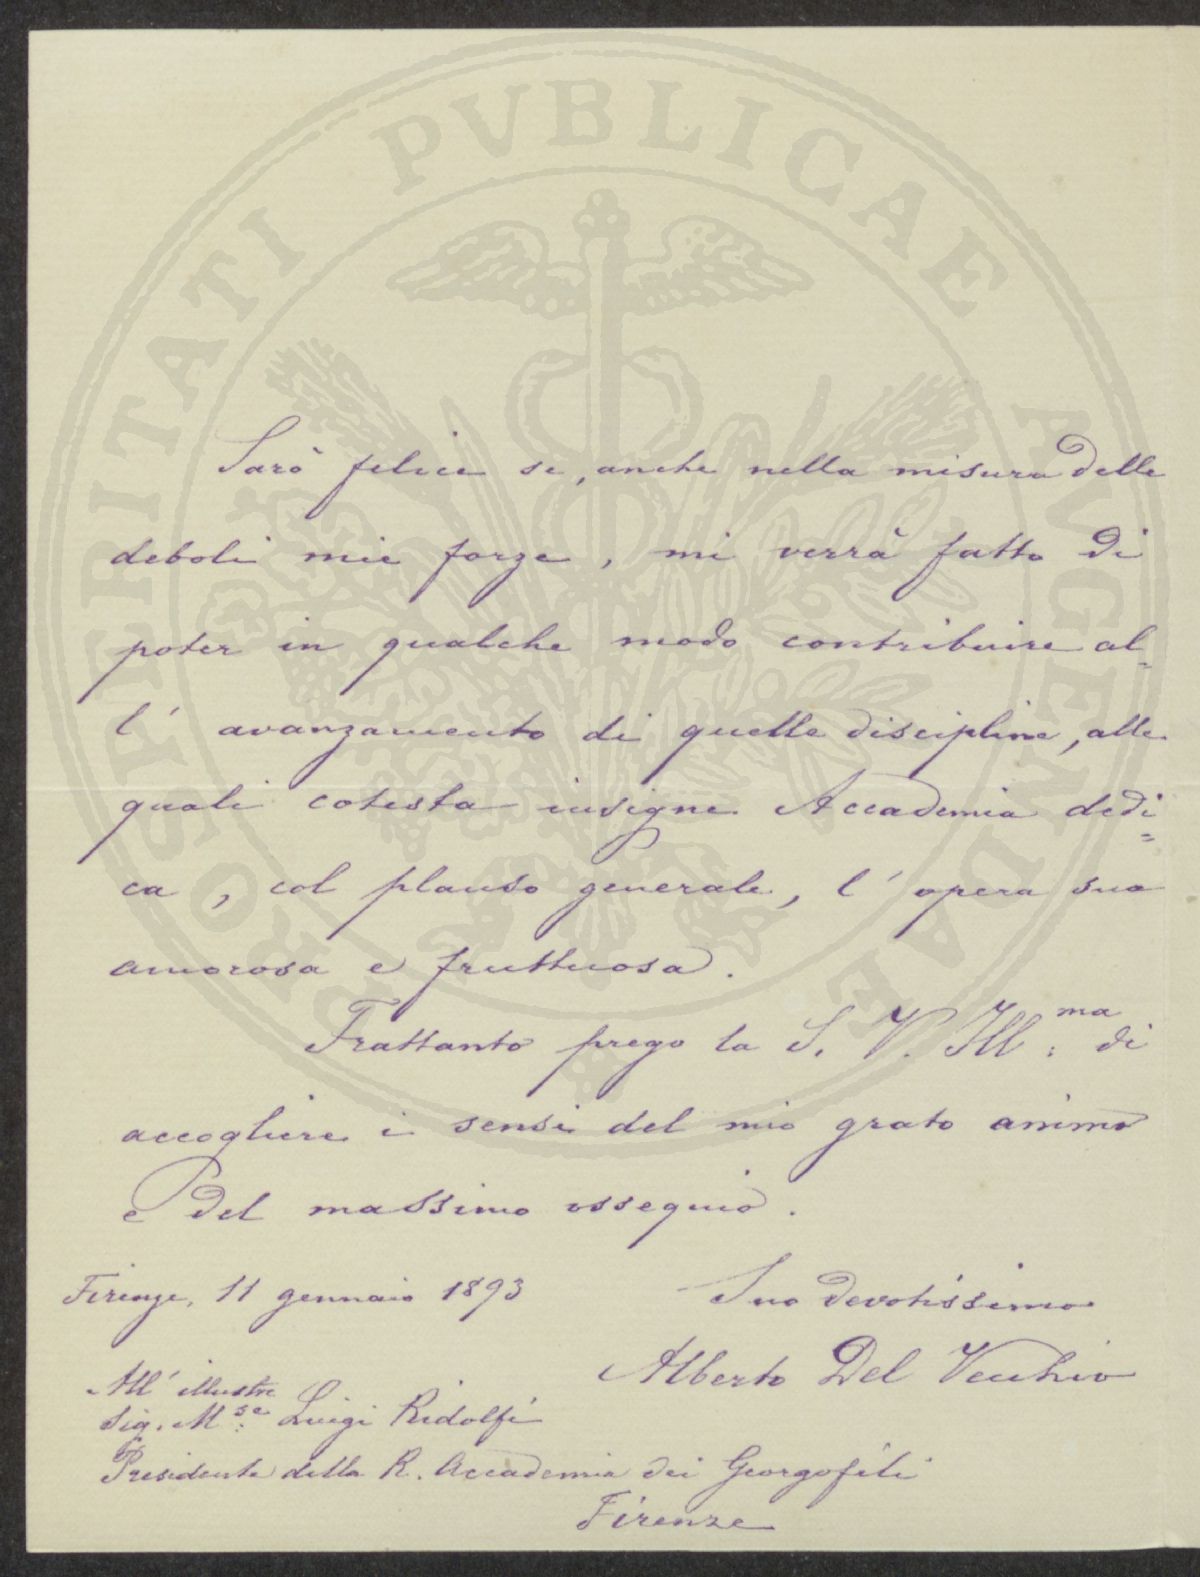 PROSPERITATI PVBLICAE AVGENDAE
Sarò felice se, anche nella misura delle
deboli mie forze, mi verrà fatto di
poter in qualche modo contribuire al-
l' avanzamento di quelle discipline, alle
quali cotesta insigne Accademia dedi=
ca, col plauso generale, l' opera sua
amorosa e fruttuosa.
Frattanto prego la S. V. Ill.ma di
accogliere i sensi del mio grato animo
e del massimo ossequio.
Firenze, 11 gennaio 1893
Suo devotissimo
Alberto Del Vecchio
All' illustre
Sig. M.se Luigi Ridolfi
Presidente della R. Accademia dei Georgofili
Firenze